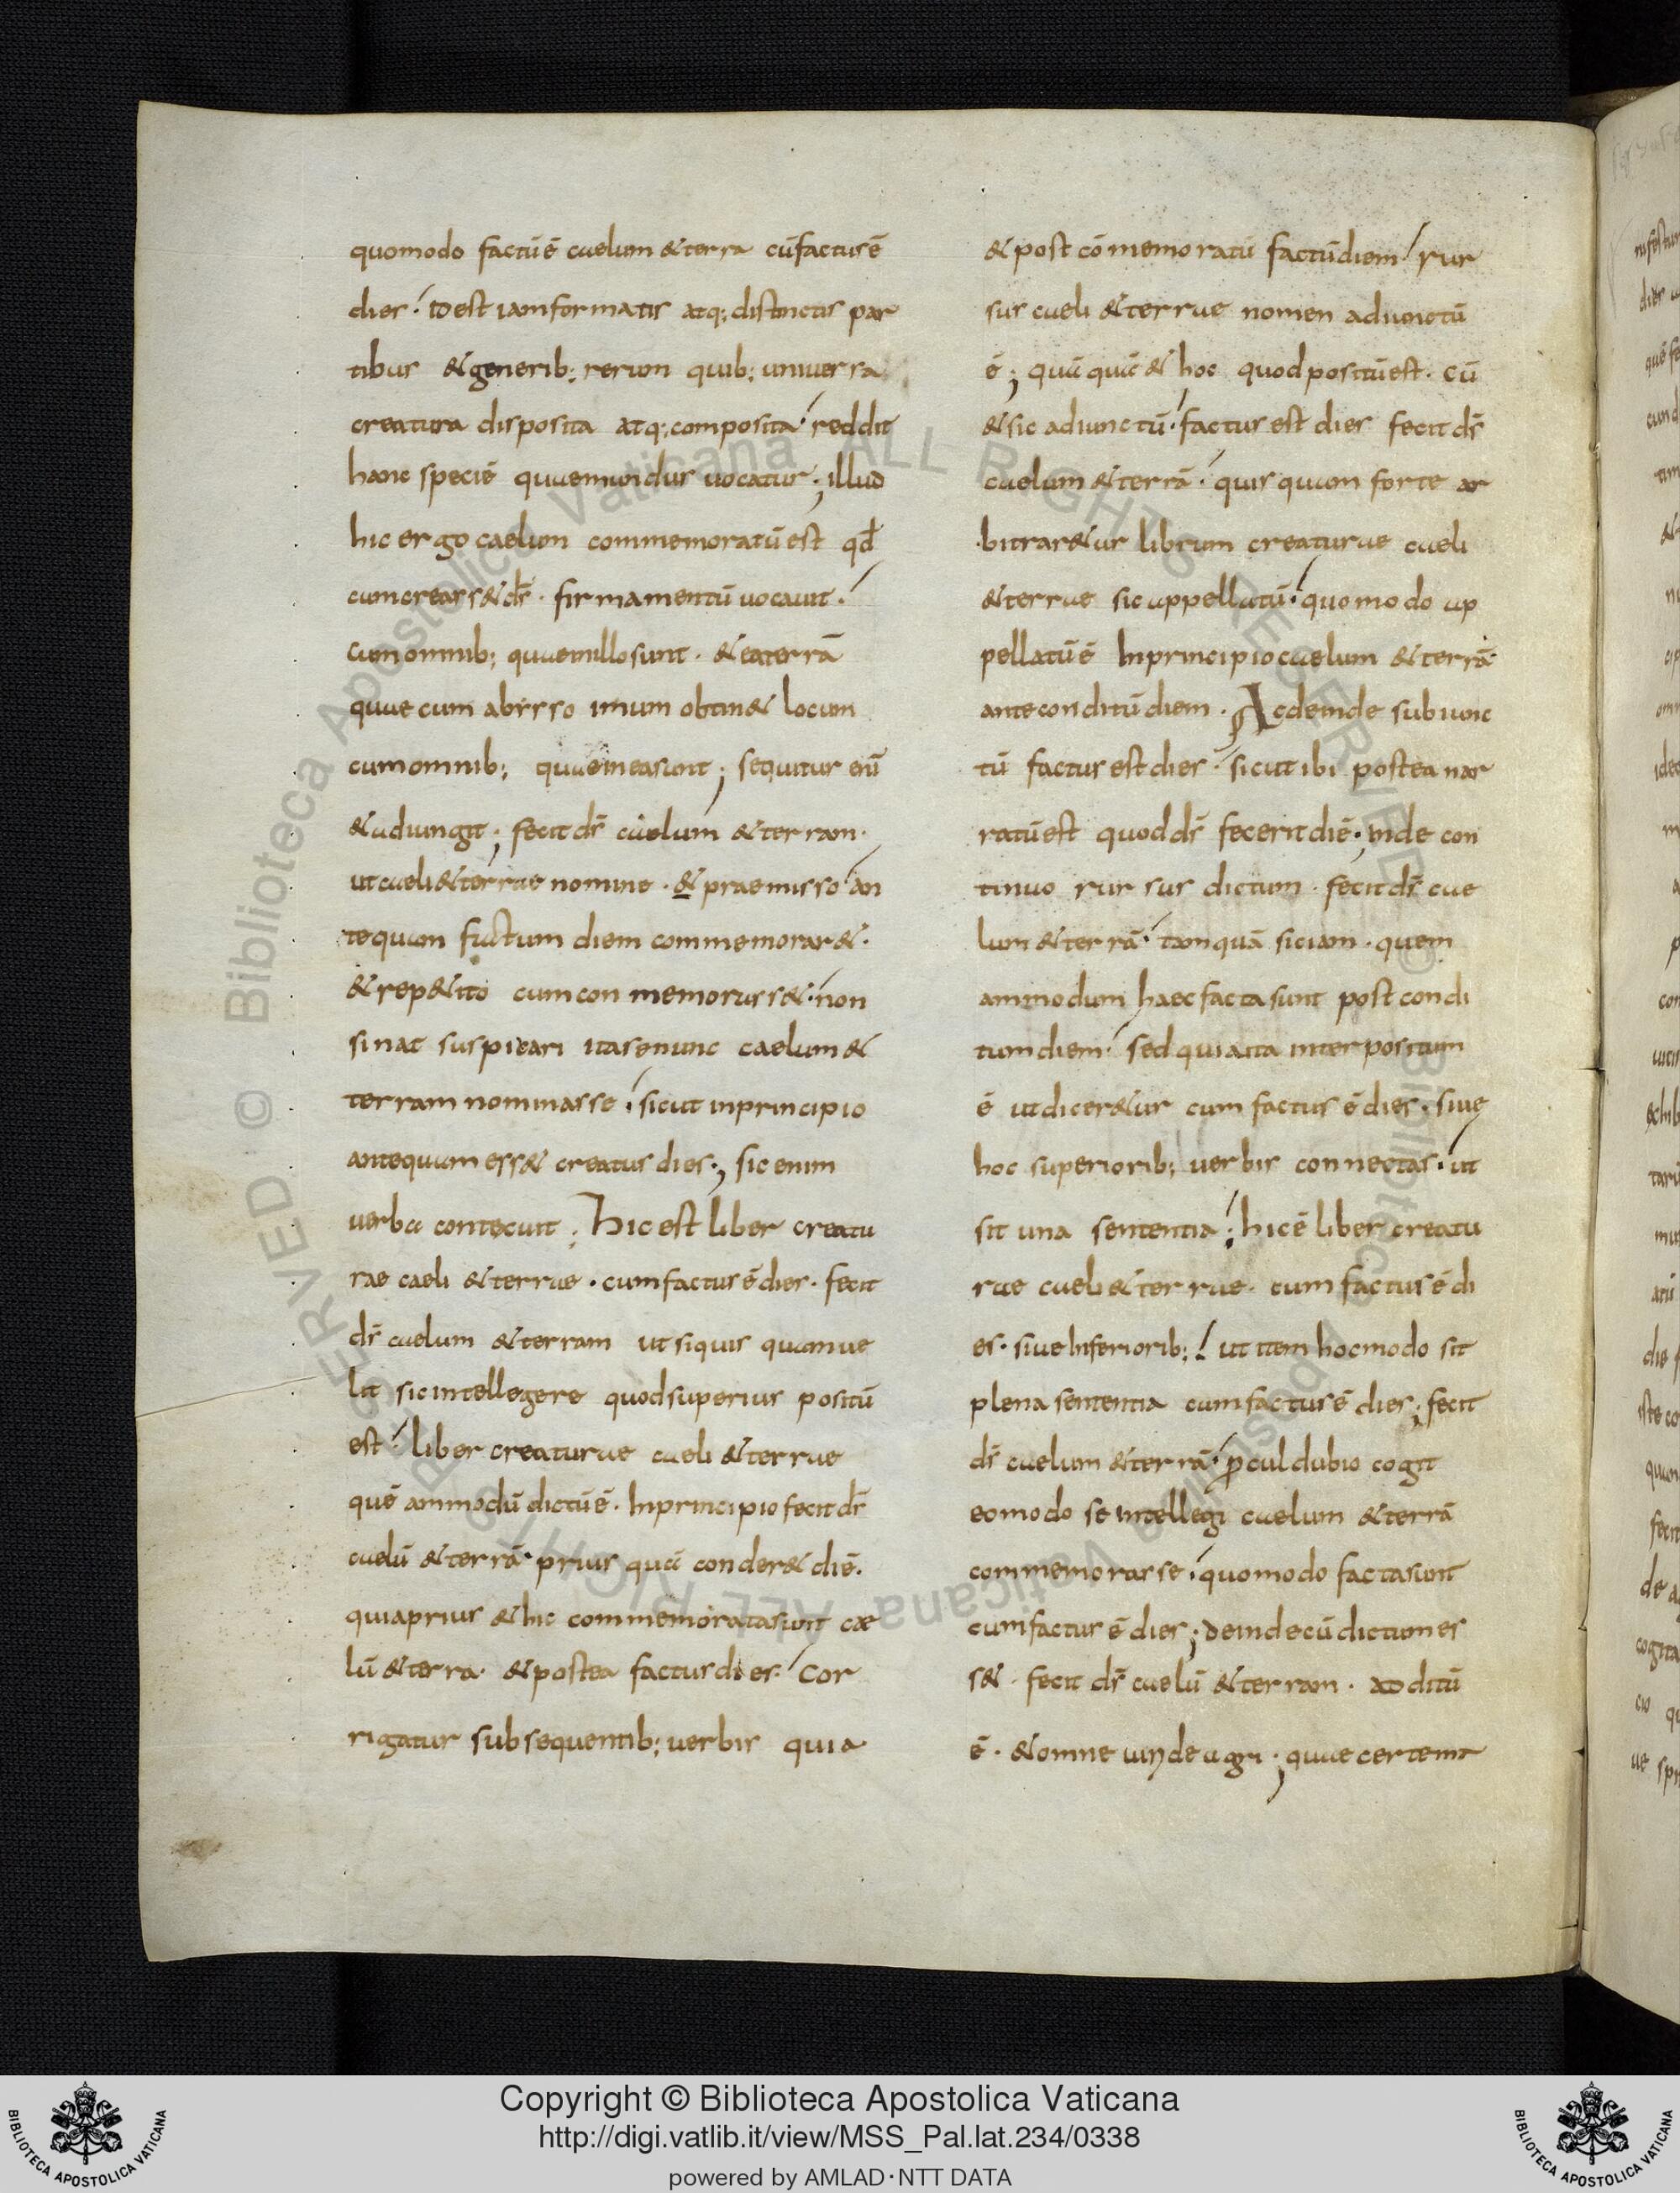 quomodo factū ē caelum & terra cū factus ē
dies ; id est iam formatis atq; distinctis par
tibus & generib; rerum quib; uniuersa
creatura disposita atq; composita reddit
hanc speciē quae mundus uocatur ; illud
hic ergo caelum commemoratū est qđ
cum creass& dš · firmamentū uocauit ·
cum omnib; quae in illo sunt · & ea terrā
quae cum abysso imum obtin& locum
cum omnib; quae in ea sunt ; sequitur enī
& adiungit ; fecit dš caelum & terram ·
ut caeli & terrae nomine · & praemisso an
tequam factum diem commemorar& ·
& rep&ito cum con memorass& · non
sinat suspicari ita se nunc caelum &
terram nominasse ; sicut in principio
antequam ess& creatus dies ; sic enim
uerba contexuit ; Hic est liber creatu
rae caeli & terrae · cum factus ē dies · fecit
dš caelum & terram ut si quis quam ue
lit sic intellegere quod superius positū
est · liber creaturae caeli & terrae
quē ammodū dictū ē · In principio fecit dš
caelū & terrā · prius quā conder& diē ·
quia prius & hic commemorata sunt cæ
lū & terra · & postea factus dies · Cor
rigatur subsequentib; uerbis quia
& post cōmemoratū factū diem · rur
sus caeli & terrae nomen adiunctū
ē ; quā quā & hoc quod positū est · cū
& sic adiunctū · factus est dies fecit dš
caelum & terrā · quis quam forte ar
bitrar&ur librum creaturae caeli
& terrae sic appellatū · quomodo ap
pellatū ē In principio caelum & terrā
ante conditū diem · Ac deinde subiunc
tū factus est dies · sicut ibi postea nar
ratū est quod dš fecerit diē ; inde con
tinuo rursus dictum · fecit dš cae
lum & terrā · tamquā si ciam · quem
ammodum haec facta sunt post condi
tum diem · sed quia ita interpositum
ē ut dicer&ur cum factus ē dies · siue
hoc superiorib; uerbis connectas · ut
sit una sententia ; hic ē liber creatu
rae caeli & terrae · cum factus ē di
es · siue Inferiorib; ut item hoc modo sit
plena sententia cum factus ē dies ; fecit
dš caelum & terrā · ꝓcul dubio cogit
eo modo se intellegi caelum & terrā
commemorasse · quomodo facta sunt
cum factus ē dies ; deinde cū dictum es
s& · fecit dš caelū & terram · additū
ē · & omne uiride agri ; quae certe int
Copyright © Biblioteca Apostolica Vaticana
http://digi.vatlib.it/view/MSS_Pal.lat.234/0338
powered by AMLAD · NTT DATA
BIBLIOTECA APOSTOLICA VATICANA
BIBLIOTECA APOSTOLICA VATICANA